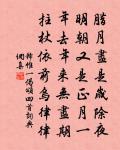 臘月盡是歲除夜
明朝又是正月一
年去年來無盡期
拄杖依前烏律律
釋惟一偈頌四首詞典
網集